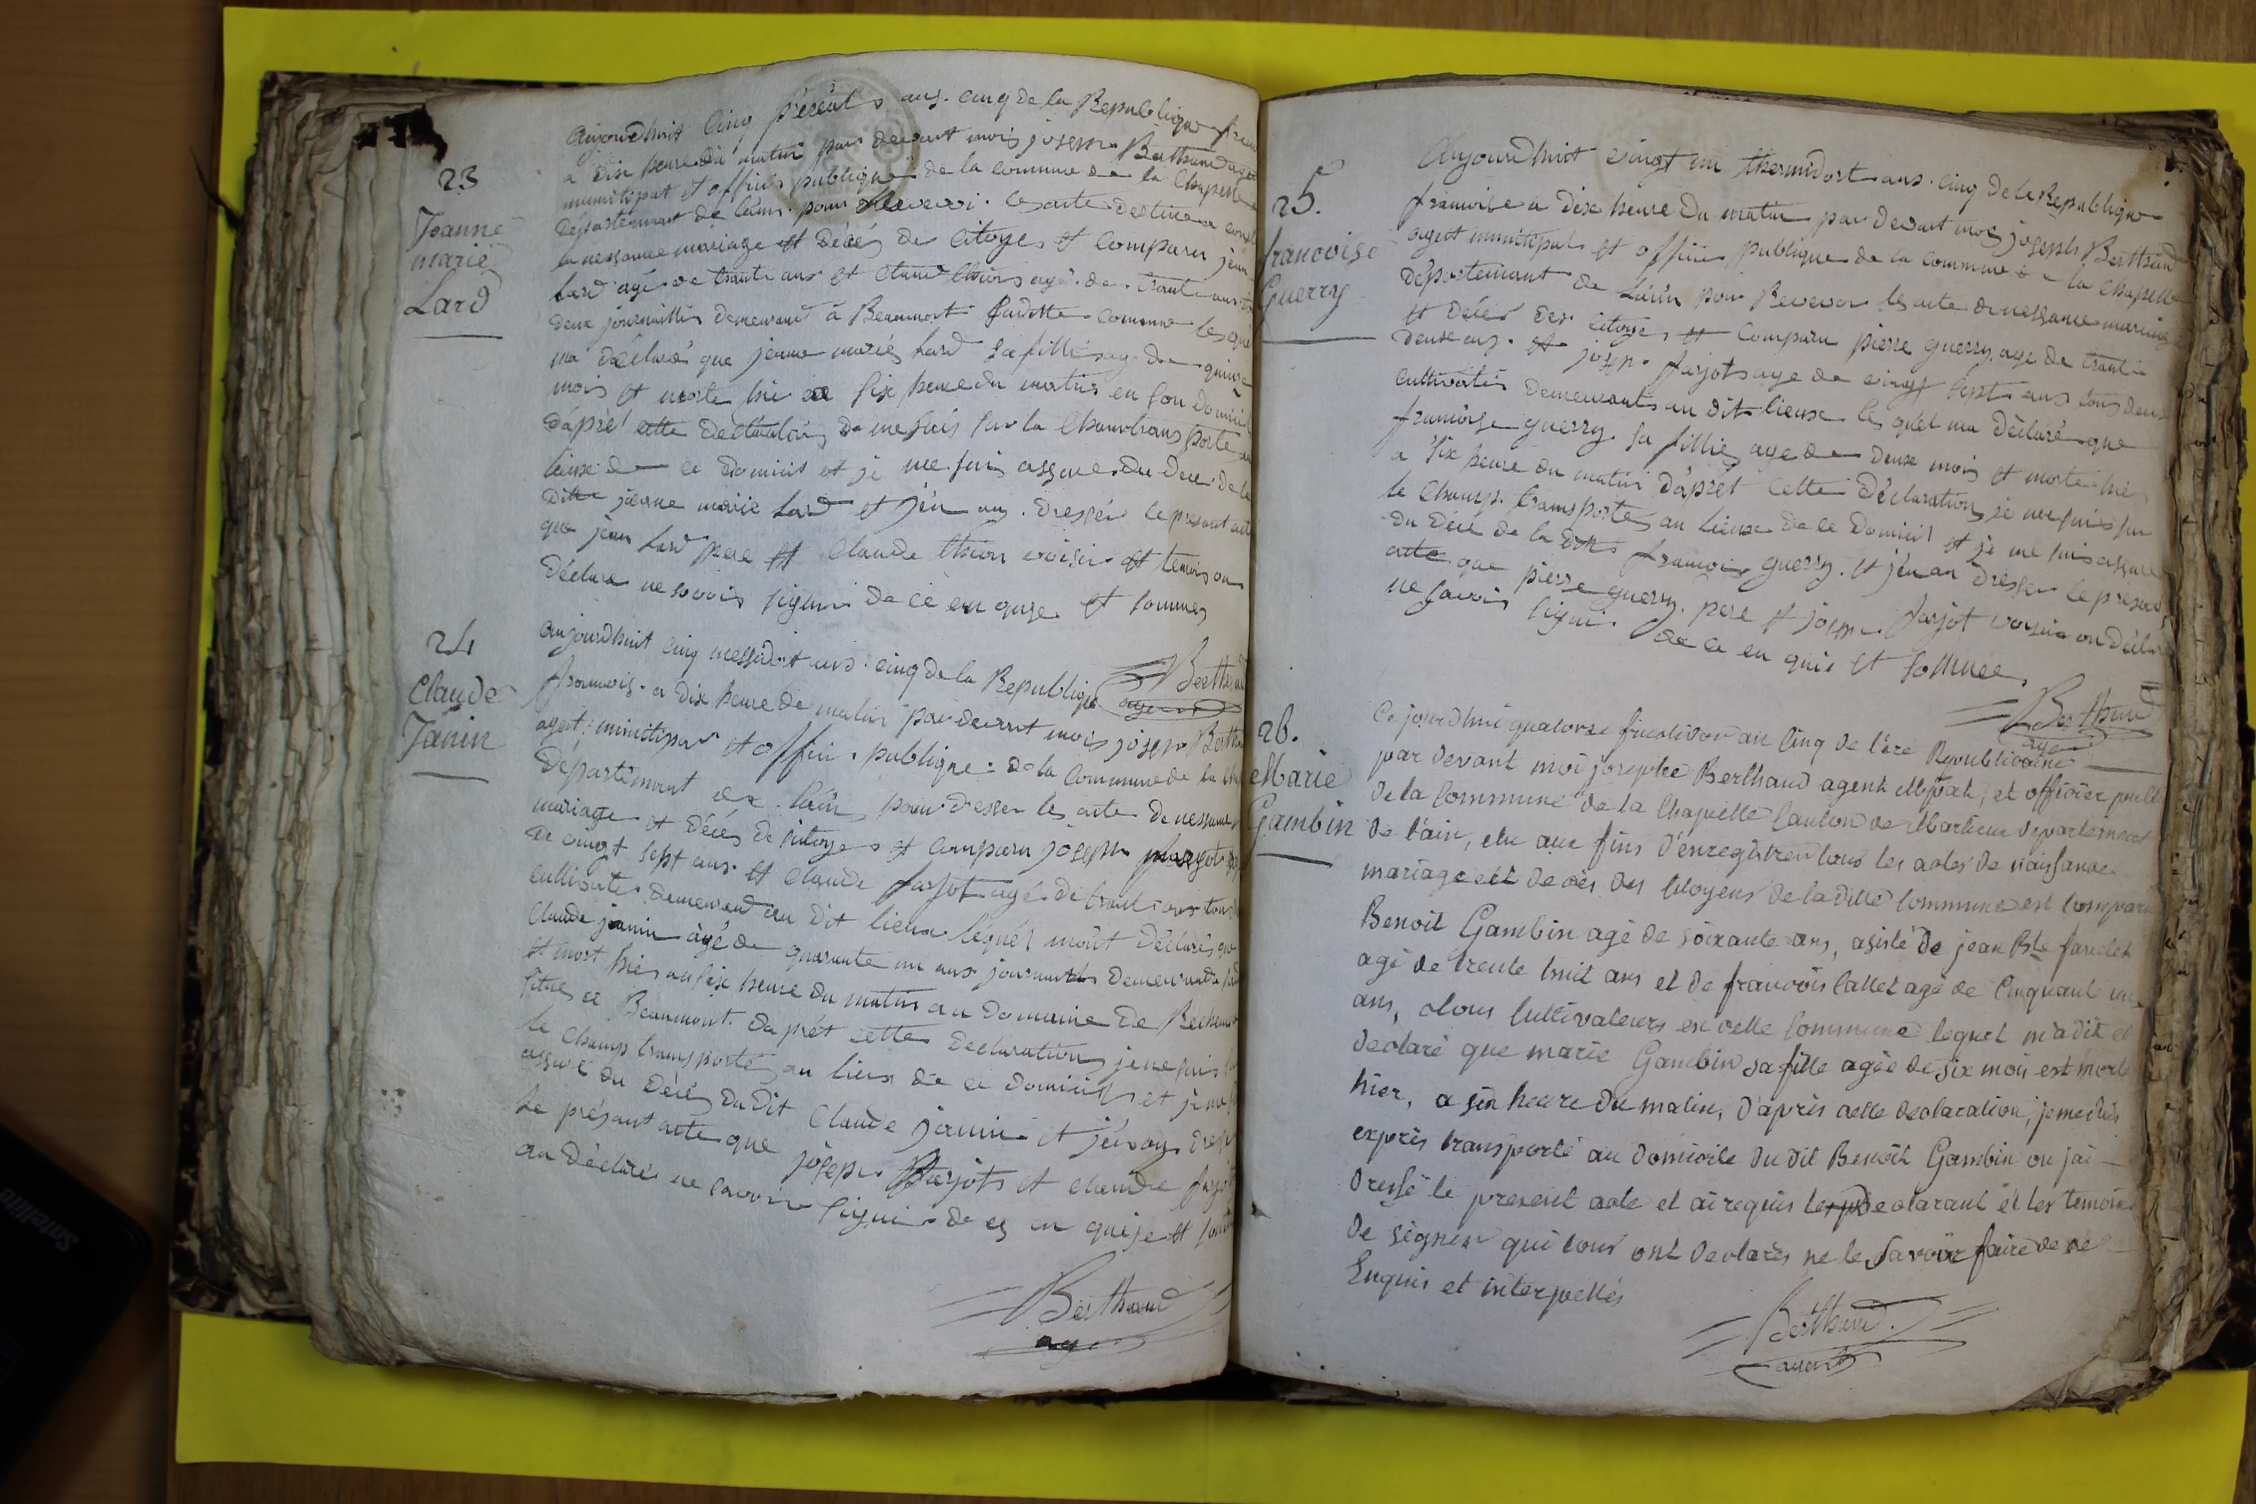 23
Jeanne
marie
Lard
Aujourdhuit cinq ans. cinq de la Republique
a dix heure du matin par devant mois joseph Berthaud agent
municipal et officié publique de la commune de la Chapelle
département de l'ain. pour les acte destine a
la nessance mariage et décés de citoyes et comparu jean
Lard agé de trante ans et agé de trante ans
deux journallié demeurant à Beaumont commune
ma déclaré que jeanne marie Lard sa fillie agé de quinze
mois et morte hié a six heure du matin en son domicil
d'apré cette declaration
lieux de ce domicil et je me suis assure du dece de la
ditte jeanne marie Lard et j'en ay dresser le present acte
que jean Lard pere et Claude voisin et temoin on
déclare ne savoir signié de ce en quize et sommes
Berthaud
agent
24
Claude
Janin
aujourdhuit cinq messidort ans. cinq de la Republique
francois. a dix heure de matin par devant mois joseph Berthaud
agent municipal et officié publique de la Commune de la
Département de l'ain pour dresser les acte de nessance
mariage et décés de sitoyes et comparu joseph
de vingt sept ans et Claude farjot agé de trante ans tous
cultivate demeurant au dit lieux léquél mont déclaré que
Claude janin agé de quarante un ans journallié demeurant
et mort hié au six heure du matin au domaine de
situes a Beaumont. daprét cette declaration je me suis
le champ transporté au lieux de ce domicil et je me
assuré du décés du dit Claude janin et j'en ay dresser
le présant acte que joseph farjots et Claude farjot
on déclaré ne savoir signié de ce en quize et
Berthaud
agent
25.
francoise
Guerry
Aujourdhuit vingt un thermidort ans. cinq de la Republique
francoise a dix heure du matin par devant moi joseph Berthaud
agent municipal et officié publique de la commune de la chapelle
département de L'ain pour Recevoir les acte de nessance mariage
et décés des citoyes et comparu pierre guerry age de trante
deux ans. et joseph farjots age de vingt sept ans tous deux
cultivatés demeurants au dit lieux les quél ma déclaré que
francoise guerry sa fillie age de deux mois et morte hié
a six heure du matin d'aprét cette déclaration je me suis sur
le champ transportés au lieux de ce domicil et je me suis assure
du décé de la ditte francoise guerry et j'en ai dresser le present
acte que pierre guerry pere et joseph farjot voysin on déclaré
ne savoir signié. de ce en quis et sommee
Berthaud
agent
26.
Marie
Gambin
Ce jourdhui quatorze fructidor an cinq de l'ére Republicaine
par devant moi josephe Berthaud agent Mpal, et officier public
de la Commune de la Chapelle Canton de Marlieux département
de l'ain, elu aux fins d'enregistrer tous les actes de naissance
mariage et de cès des Citoyens de la ditte Commune est comparu
Benoit Gambin agé de soixante ans, asisté de jean Bte
agé de trente huit ans et de francois Callet agé de Cinquant un
ans, tous Cultivateurs en cette Commune lequel m'a dit et
declaré que marie Gambin sa fille agée de six mois est morte
hier, a six heure du matin, d'après cette declaration, je me suis
exprès transporté au domicile du dit Benoit Gambin ou j'ai
dressé le present acte et ai requis le declarant et les temoins
de signer qui tous ont declarés ne le savoir faire de ce
Enquis et interpellés
Berthaud.
agent